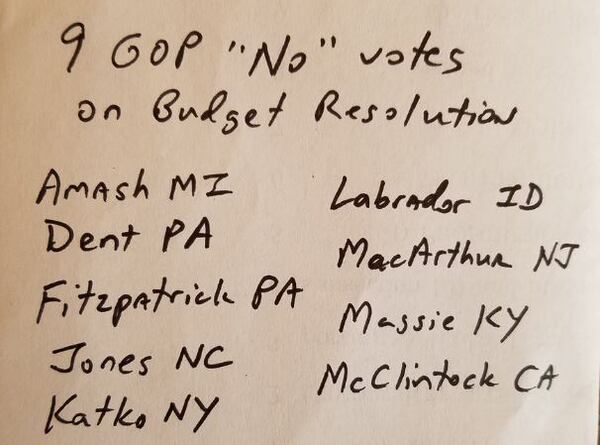 9 GOP "No" votes
on Budget Resolution
Amash MI
Dent PA
Fitzpatrick PA
Jones NC
Katko NY
Labrador ID
MacArthur NJ
Massie KY
McClintock CA